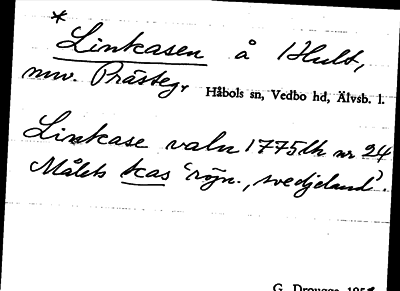 *
Linkasen å Hult,
nuv. Prästeg.
Håbols sn, Vedbo hd, Älvsb. l.
Linkase valn 1775 lh nr 24
Målets kas 'röjn., svedjeland'.
G. Drougge